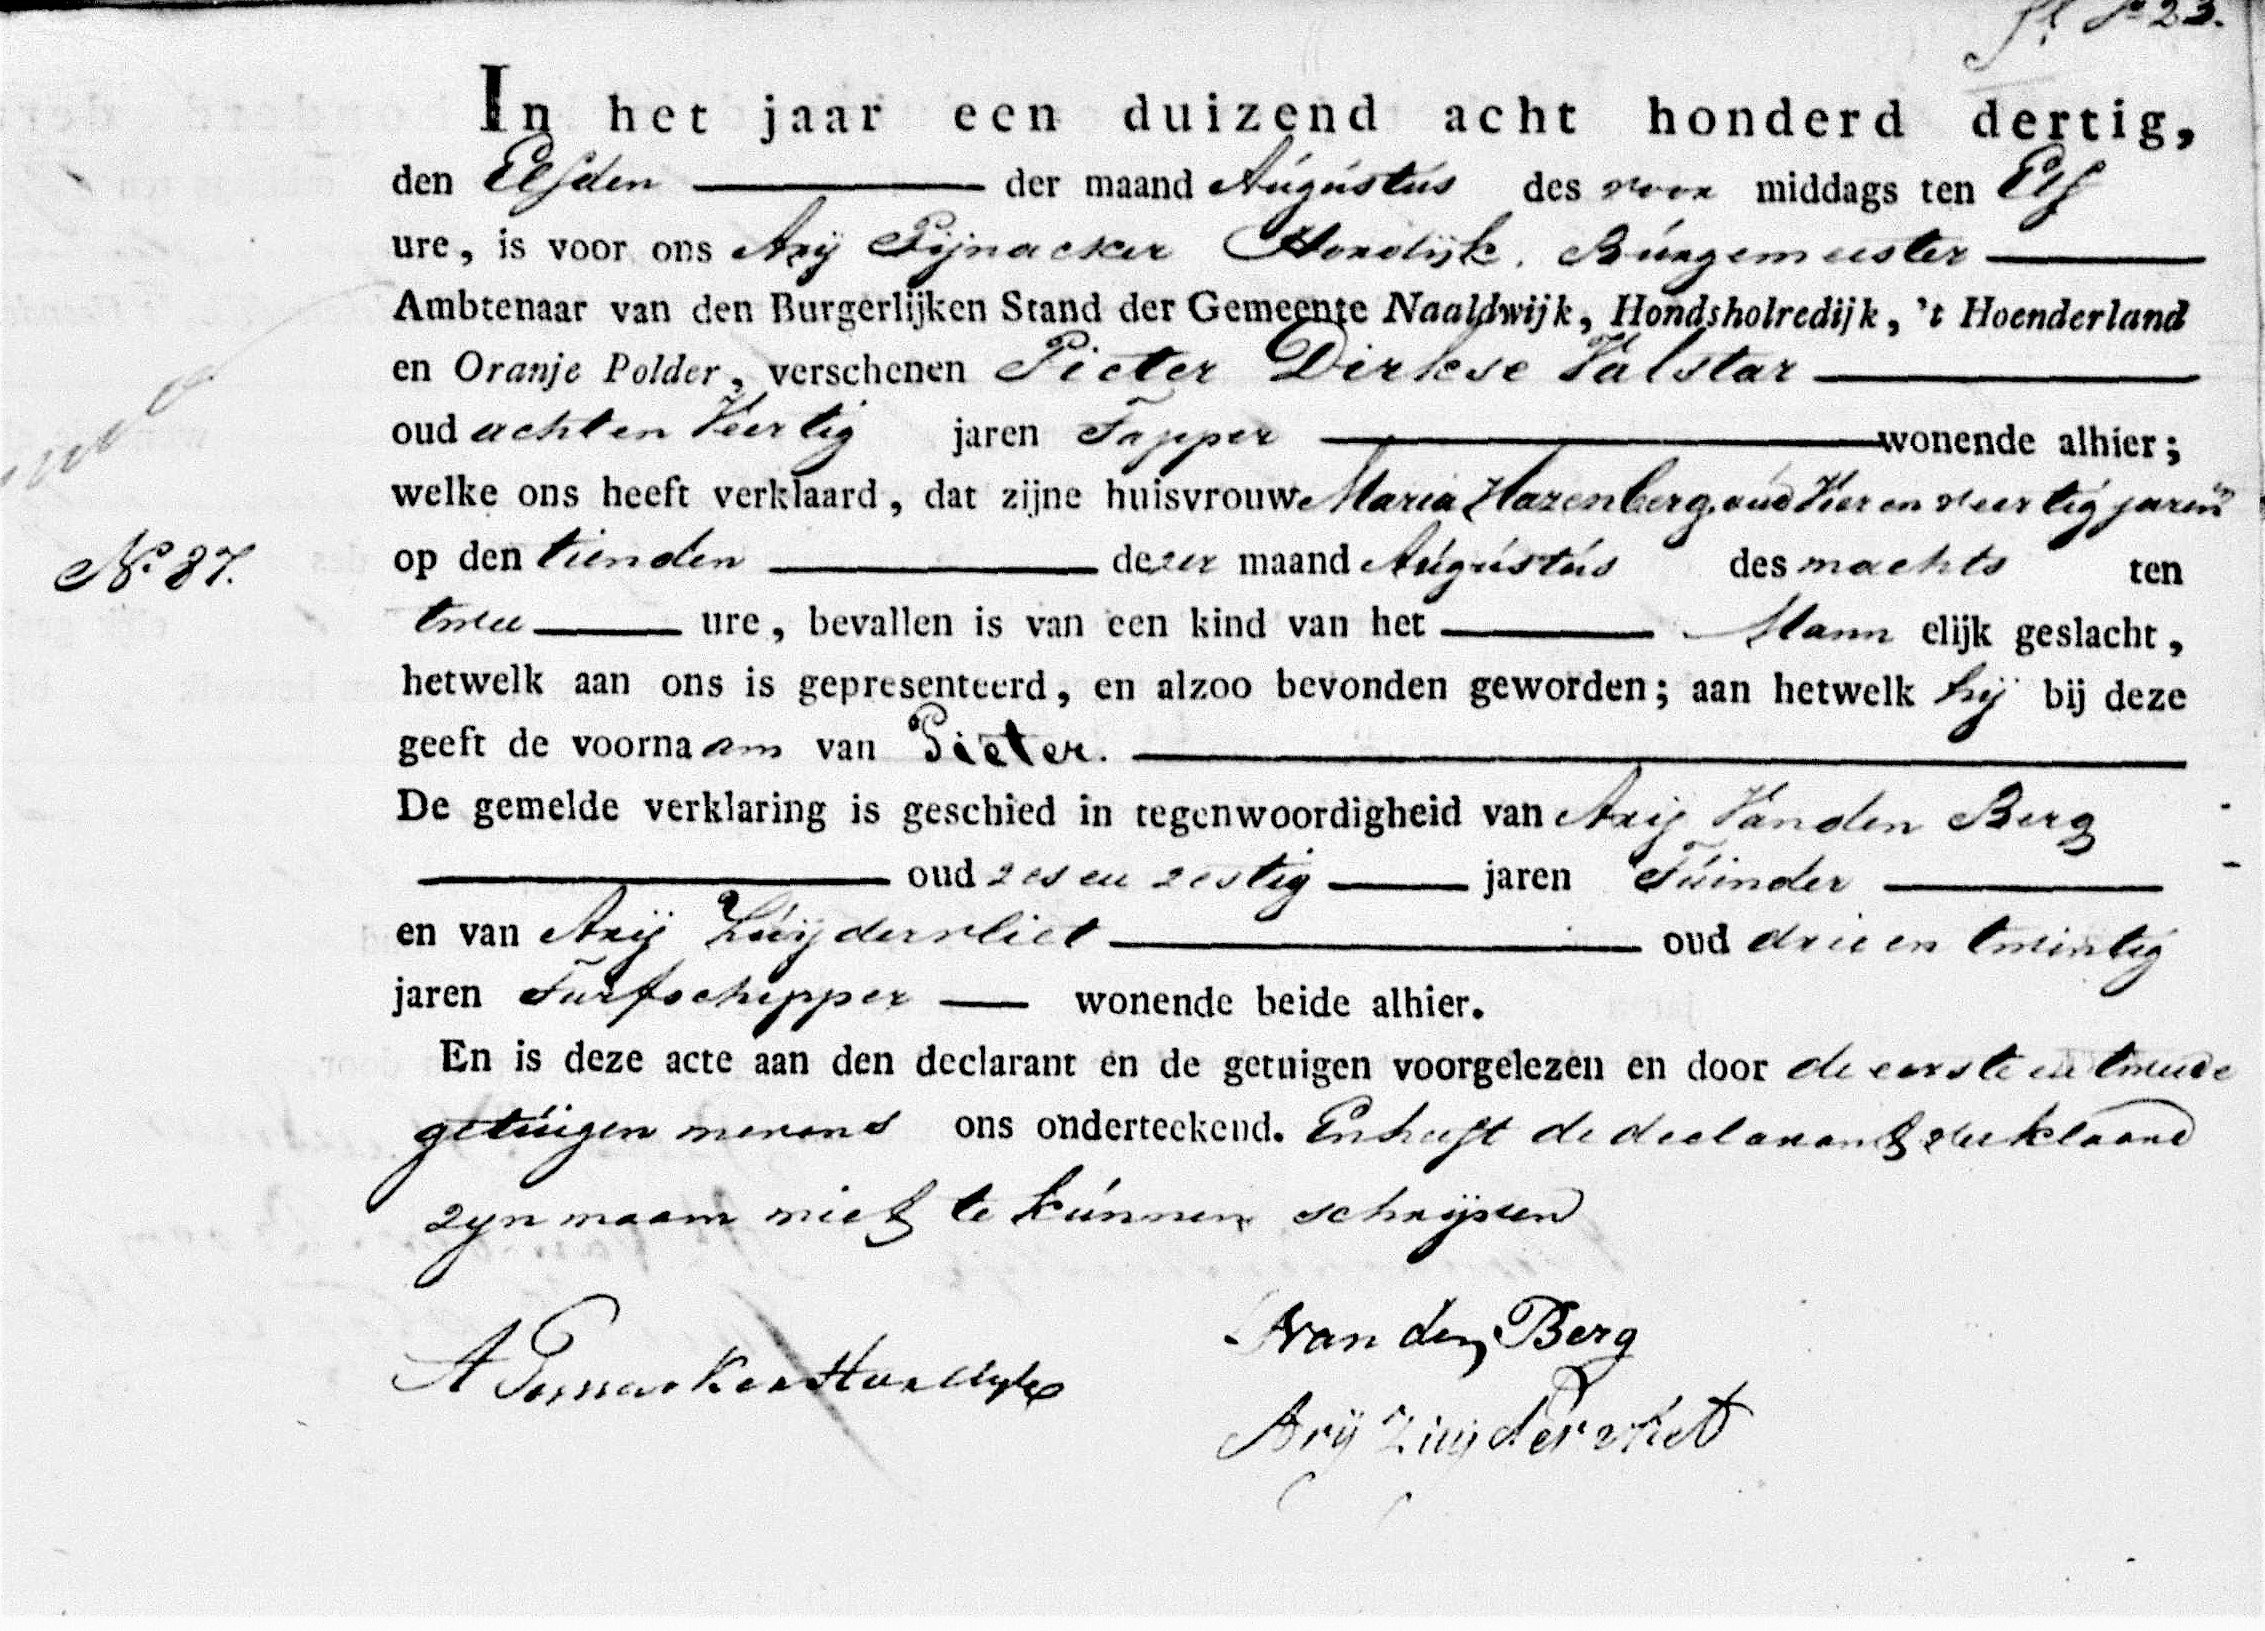 23.
In het jaar een duizend acht honderd dertig,
den Elfden der maand Augustus des voor middags ten Elf
ure, is voor ons Arij Pijnacker Hordijk. Burgemeester
Ambtenaar van den Burgerlijken Stand der Gemeente Naaldwijk, Hondsholredijk, 't Hoenderland
en Oranje Polder, verschenen Pieter Dirkse Valstar
oud achten Veertig jaren Tapper wonende alhier;
welke ons heeft verklaard, dat zijne huisvrouw Maria Hazenberg, oud Vier en veertig jaren
No 87. op den tienden dezer maand Augustus des nachts ten
twee ure, bevallen is van een kind van het Mann elijk geslacht,
hetwelk aan ons is gepresenteerd, en alzoo bevonden geworden; aan hetwelk hij bij deze
geeft de voornaam van Pieter.
De gemelde verklaring is geschied in tegenwoordigheid van Arij Vanden Berg
oud zes en zestig jaren Tuinder
en van Arij Zuijdervliet oud drie en twintig
jaren Turfschipper wonende beide alhier.
En is deze acte aan den declarant en de getuigen voorgelezen en door de eerste en tweede
getuigen nevens ons onderteekend. En heeft de declarant verklaard
zyn naam niet te kunnen schrijven
A Pijnacker Hordijk
A van den Berg
Arij Zuijdervliet